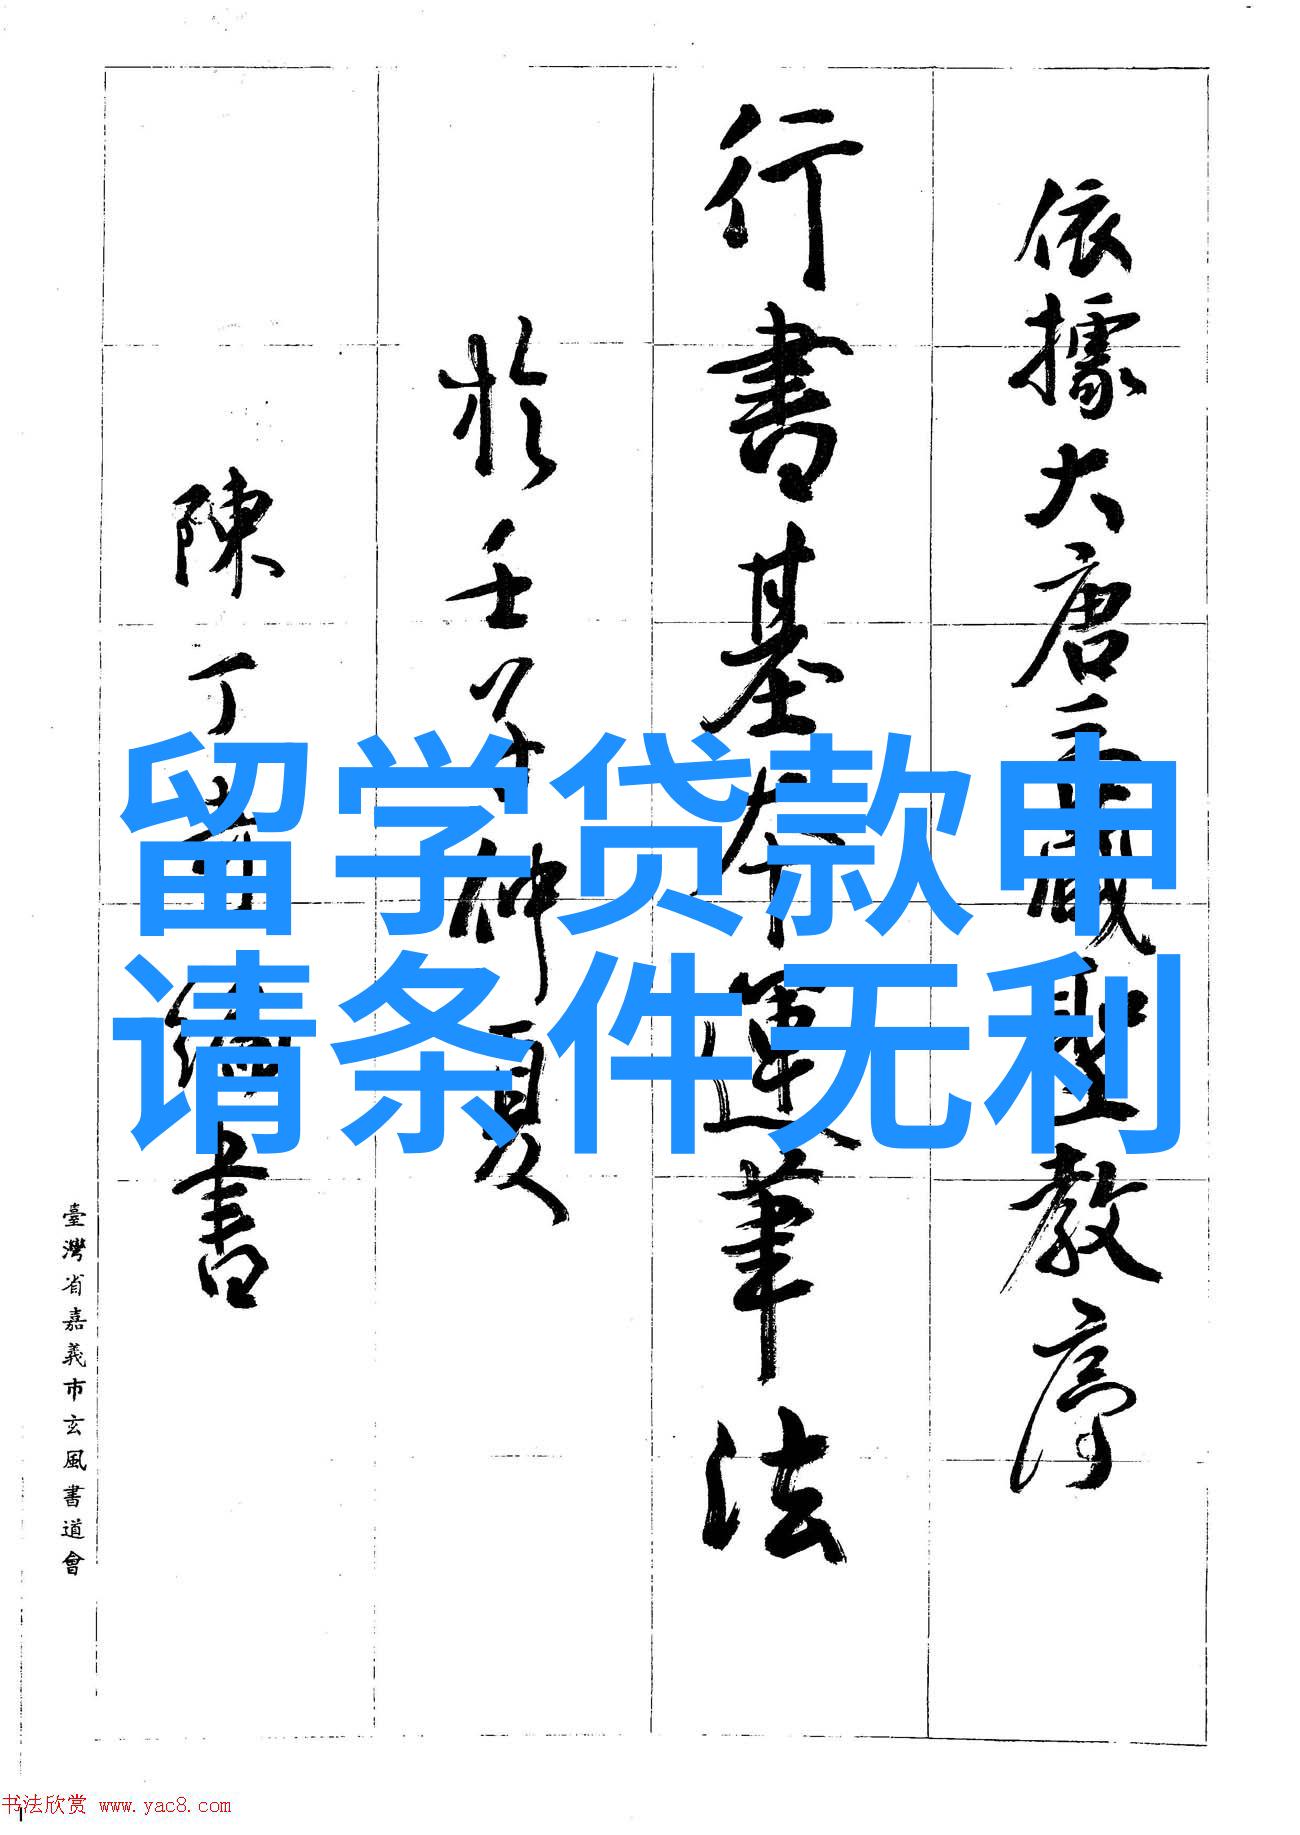 依據大唐三藏聖教序
行書基本運筆法
於壬子仲夏
陳丁奇編書
臺灣省嘉義市玄風書道會
留学贷款申
请条件无利
书法欣赏 www.yac8.com